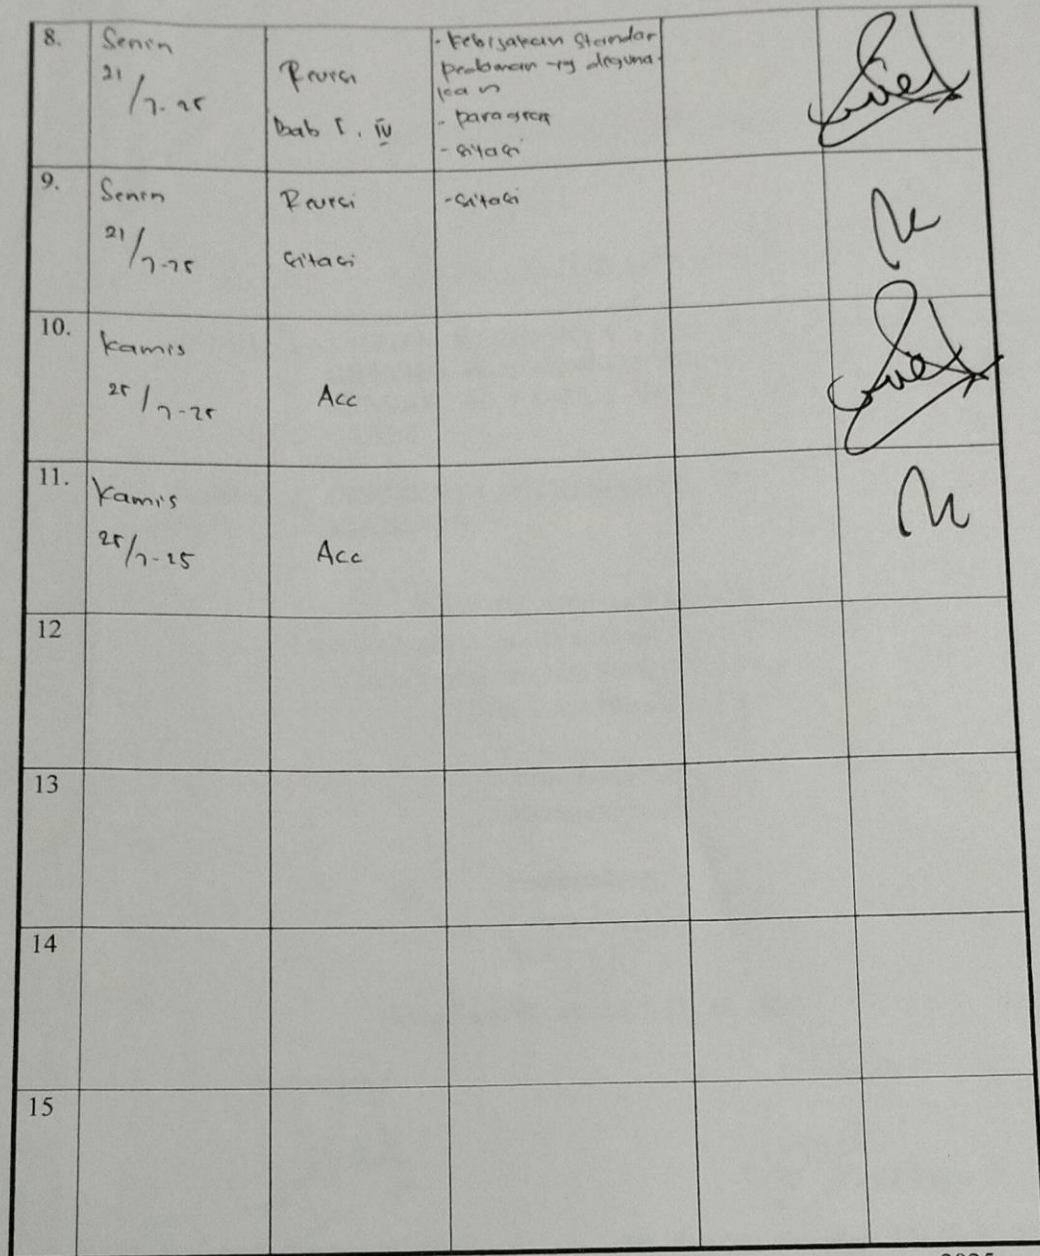 8.
Senin
21/7-25
Revisi
Bab I, IV
- Kebijakan Standar
pedoman yg diguna-
kan
- paragraf
- sitasi
9.
Senin
21/7-25
Revisi
Sitasi
- Sitasi
10.
Kamis
25/7-25
Acc
11.
Kamis
25/7-25
Acc
12
13
14
15